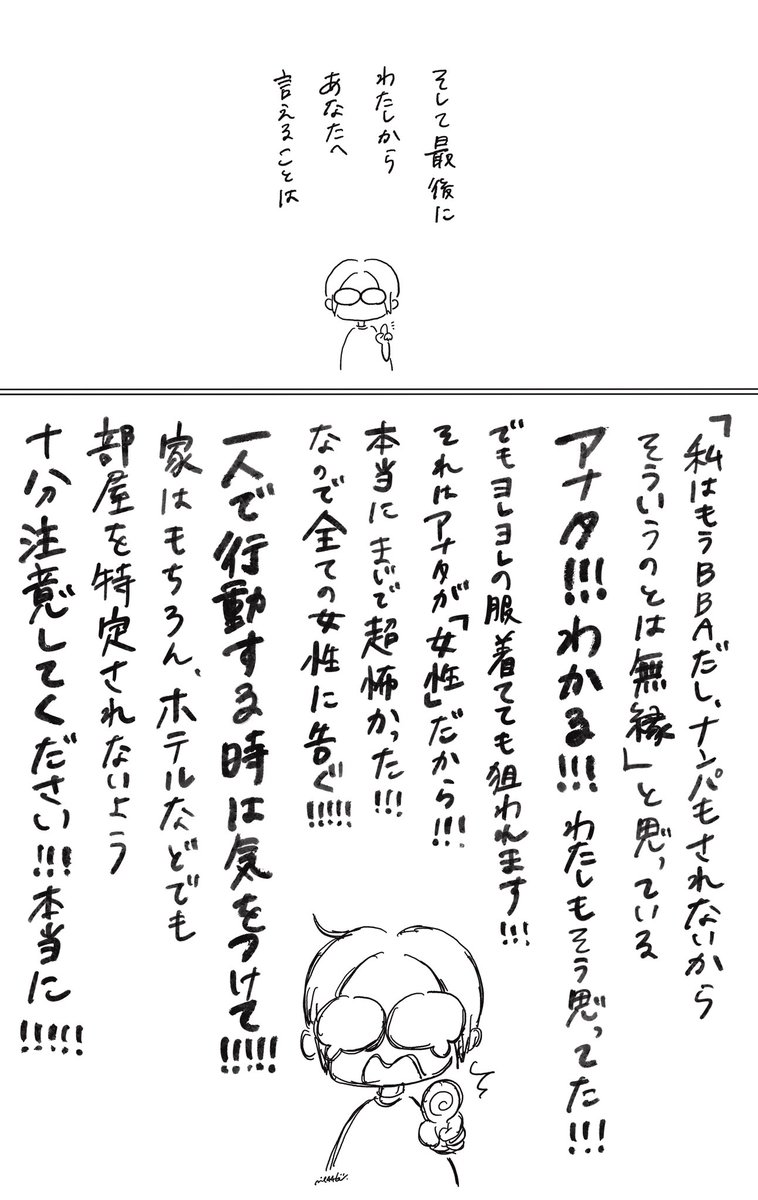 そして最後に
わたしから
あなたへ
言えることは
「私はもうBBAだし、ナンパもされないから
そういうのとは無縁」と思っている
アナタ!!!わかる!!!わたしもそう思ってた!!!
でもヨレヨレの服着てても狙われます!!!
それはアナタが「女性」だから!!!
本当にまじで超怖かった!!!
なので全ての女性に告ぐ!!!!!
一人で行動する時は気をつけて!!!!!
家はもちろん、ホテルなどでも
部屋を特定されないよう
十分注意してください!!!本当に!!!!!